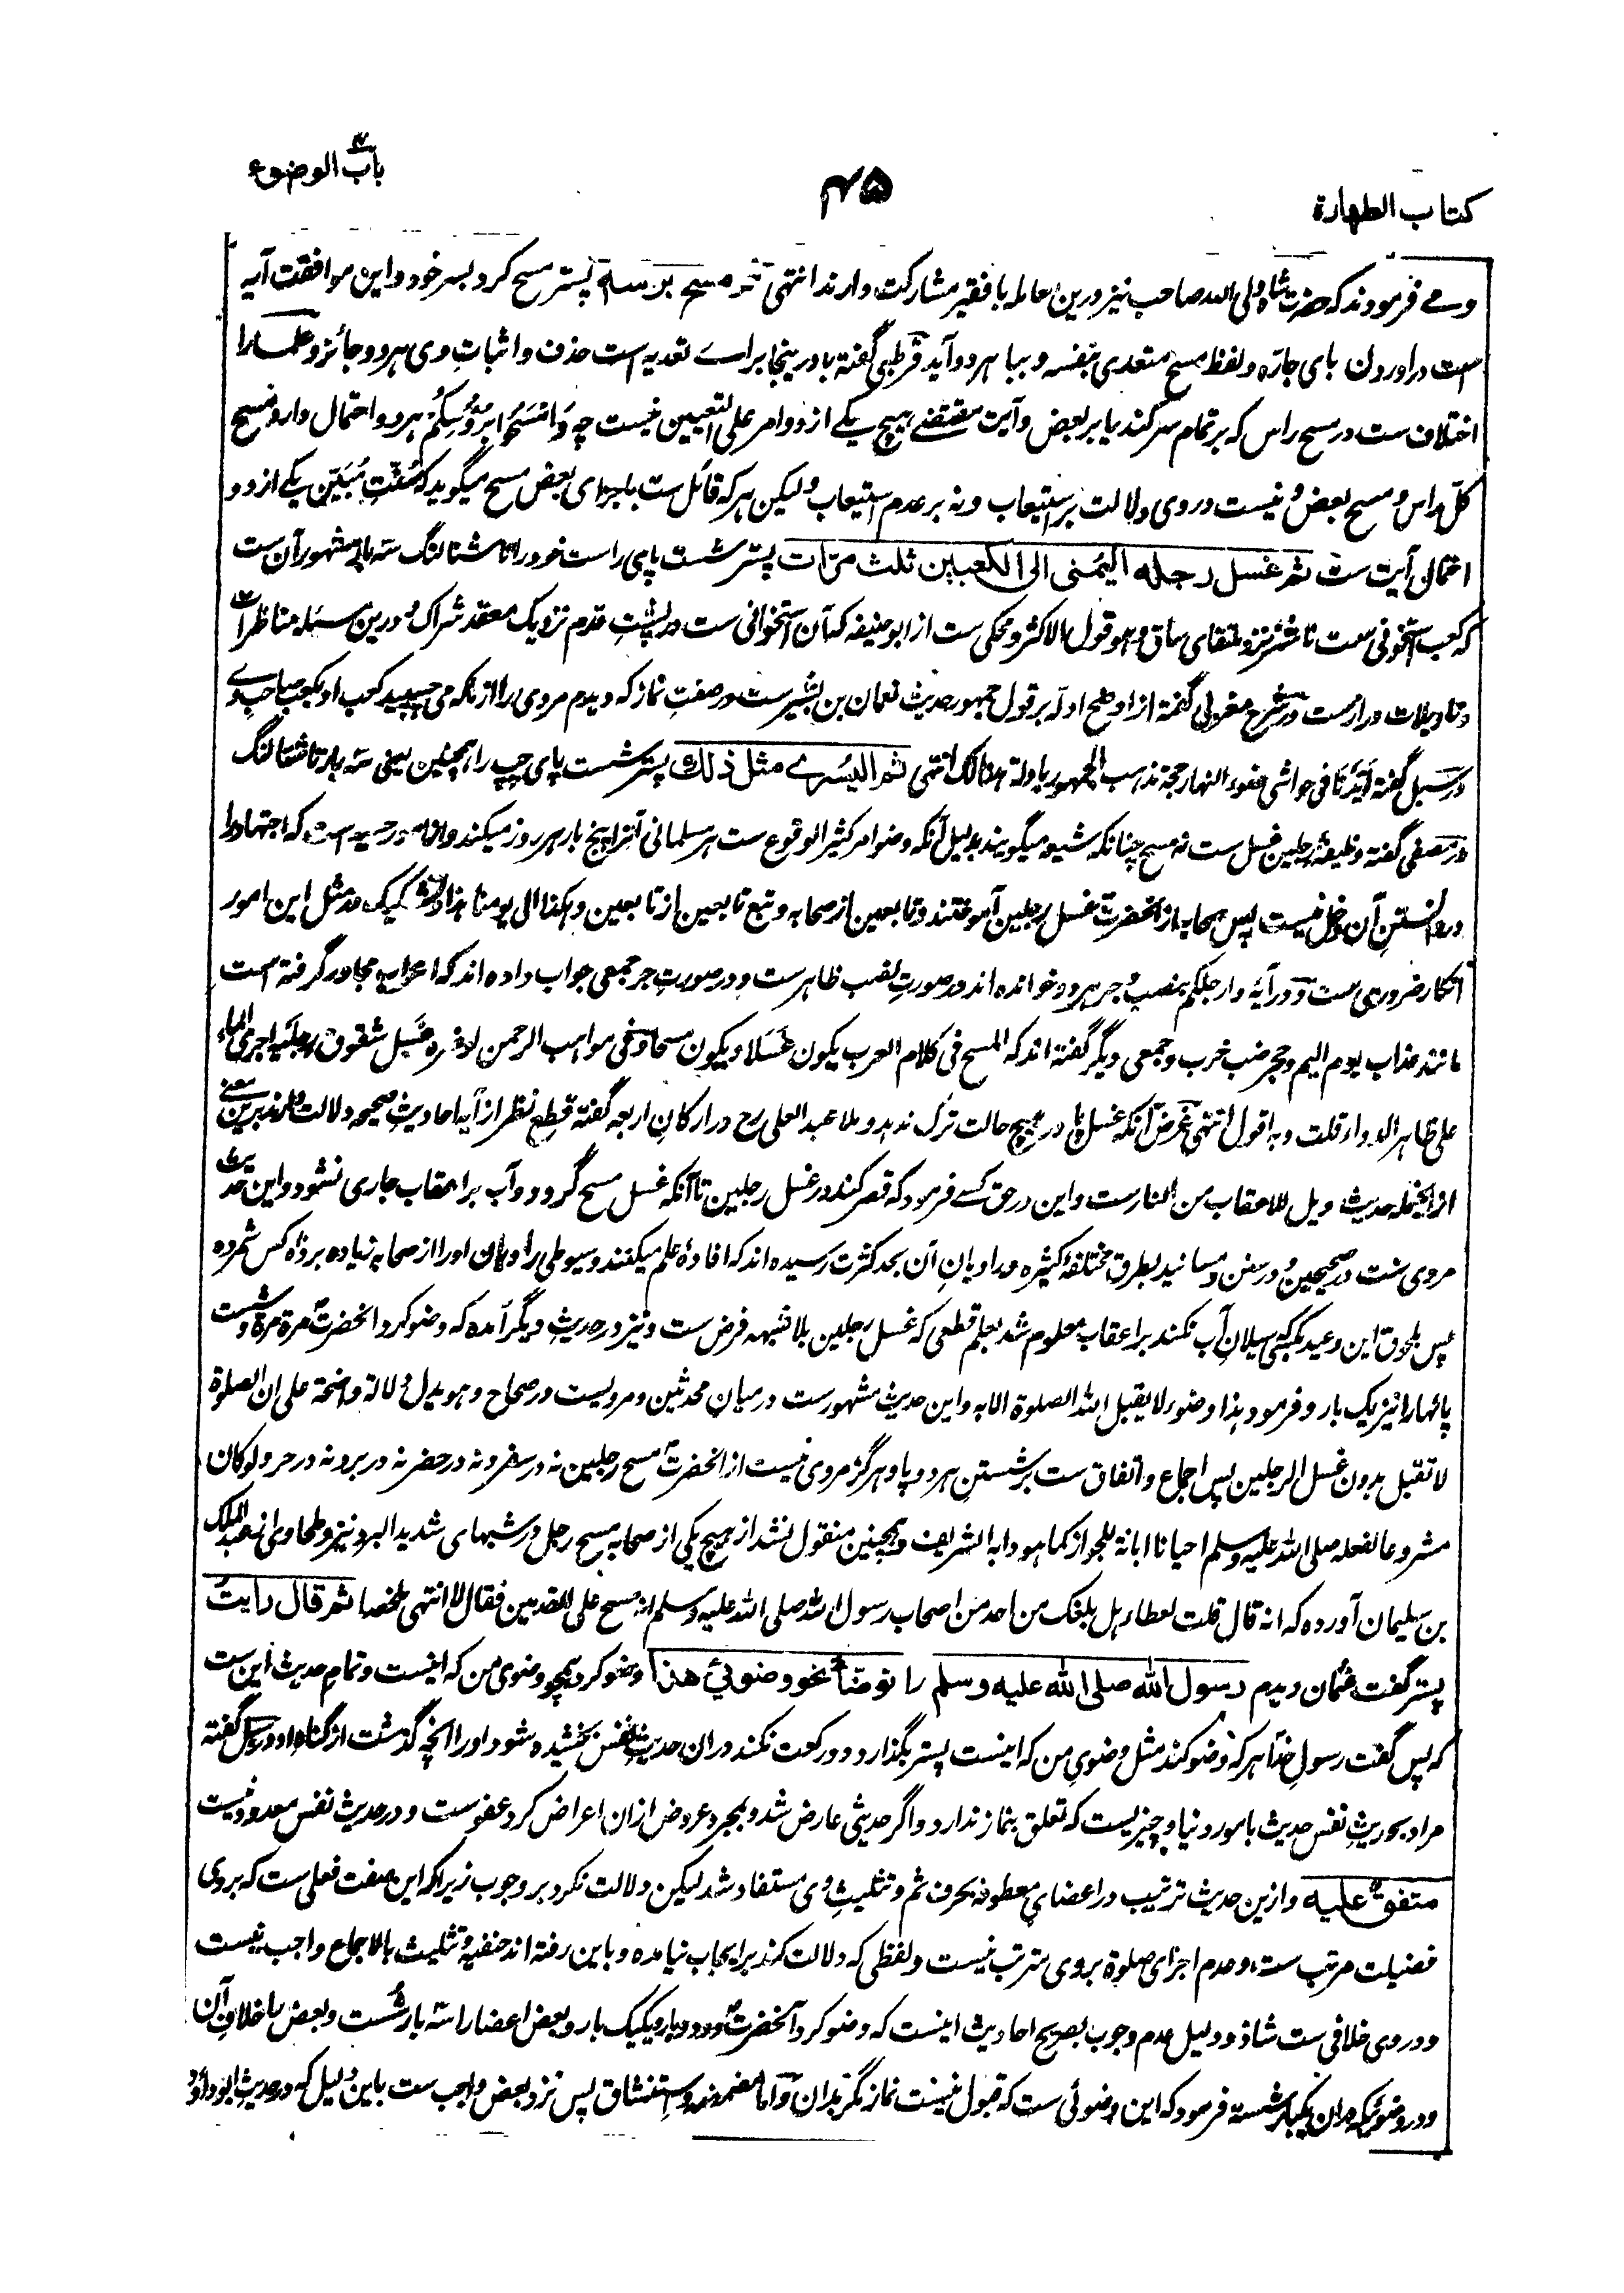 کتاب الطهارة
۴۵
باب الوضوء
و مے فرمودند که حضرت شاه ولی الله صاحب نیز درین معامله با فقیر مشارکت دارند انتهی ثم مسح برأسه پستر مسح کرد بسر خود و این موافقت آیه
است در آوردن بای جاره و لفظ مسح متعدی بنفسه و ببا هر دو آید قرطبی گفته با درینجا براے تعدیه است حذف و اثبات وی هر دو جائز و علما را
اختلاف ست در مسح راس که بر تمام سر کند یا بر بعض و آیت مقتضے هیچ یکے از دو امر علی التعیین نیست چه وَامْسَحُوا بِرُؤُسِکُمْ هر دو احتمال دارد مسح
کل راس و مسح بعض و نیست در وی دلالت بر استیعاب و نه بر عدم استیعاب و لیکن هر که قائل ست باجزای بعض مسح میگوید که سنت مبین یکے از دو
احتمال آیت ست ثم غسل رجله الیمنی الی الکعبین ثلث مرّات پستر شست پای راست خود را تا شتالنگ سه بار مشهور آن ست
که کعب استخوانی ست ناشز نزد ملتقای ساق و هو قول الاکثر و محکی ست از ابو حنیفه که آن استخوانی ست در پشت قدم نزدیک معقد شراک و درین مسئله مناظرات
و تاویلات دراز ست در شرح مغربی گفته از اوضح ادله بر قول جمهور حدیث نعمان بن بشیر ست در صفت نماز که دیدم مردی را از ما که می چسپید کعب او بکعب صاحب وے
در سبل گفته ایدنا فی حواشی ضوء النهار حجة مذهب الجمهور بادلة هنالک انتهی ثم الیسرے مثل ذلك پستر شست پای چپ را همچنین یعنی سه بار تا شتالنگ
در مصفی گفته وظیفهٔ رجلین غسل ست نه مسح چنانکه شیعه میگویند بدلیل آنکه وضو امر کثیر الوقوع ست هر مسلمانی آنرا پنج بار هر روز میکند و امر حسی است که اجتهاد را
در دانستن آن دخل نیست پس صحابه از آنحضرت غسل رجلین آموختند و تابعین از صحابه و تبع تابعین از تابعین و هکذا الی یومنا هذا در مثل این امور
انکار ضروری ست و در آیه وارجلکم بنصب و جر هر دو خوانده اند در صورت نصب ظاهر ست و در صورت جر جمعی جواب داده اند که اعراب مجاور گرفته است
مانند عذاب یوم الیم و جحر ضب خرب و جمعی دیگر گفته اند که المسح فی کلام العرب یکون غسلا و یکون مسحا و فی مواهب الرحمن لا غیره غسل شقوق رجلیه اجری الماء
علی ظاهر الدواء قلت و به اقول انتهی غرض آنکه غسل پا در هیچ حالت ترک ندهد و ملا عبد العلی رح در ارکان اربعه گفته قطع نظر از آیه احادیث صحیحه دلالت دارند برین معنے
ازانجمله حدیث ویل للاعقاب من النار ست و این در حق کسے فرمود که قصر کند در غسل رجلین تا آنکه غسل مسح گردد و آب بر اعقاب جاری نشود و این حدیث
مروی ست در صحیحین و در سنن و مسانید بطرق مختلفهٔ کثیره و راویان آن بحد کثرت رسیده اند که افادهٔ علم میکنند و سیوطی راویان او را از صحابه زیاده بر ده کس شمرده
پس بلحوق این وعید بکسی که سیلان آب نکند بر اعقاب معلوم شد بعلم قطعی که غسل رجلین بلا شبهه فرض ست و نیز در حدیث دیگر آمده که وضو کرد آنحضرت مرة مرة و شست
پائها را نیز یک بار و فرمود هذا وضوء لا یقبل الله الصلوة الا به و این حدیث مشهور ست در میان محدثین و مرویست در صحاح و هو یدل دلالة واضحة علی ان الصلوة
لا تقبل بدون غسل الرجلین پس اجماع و اتفاق ست بر شستن هر دو پا و هرگز مروی نیست از آنحضرت مسح رجلین نه در سفر و نه در حضر نه در برد نه در حر و لو کان
مشروعا لفعله صلی الله علیه وسلم احیانا ابانة للجواز کما هو دابه الشریف و همچنین منقول نشد از هیچ یکی از صحابه مسح رجل در شبهای شدید البرد نیز و طحاوی از عبد الملک
بن سلیمان آورده که انه قال قلت لعطاء هل بلغک من احد من اصحاب رسول الله صلی الله علیه وسلم انه مسح علی القدمین فقال لا انتهی ملخصا ثم قال رأیت
پستر گفت عثمان دیدم رسول الله صلی الله علیه وسلم را توضأ نحو وضوئی هذا وضو کرد همچو وضوی من که اینست و تمام حدیث این ست
که پس گفت رسول خدا هر که وضو کند مثل وضوی من که اینست پستر بگذارد دو رکعت نکند دران حدیث نفس بخشیده شود او را آنچه گذشت از گناه او در سبل گفته
مراد بحدیث نفس حدیث بامور دنیا و چیزیست که تعلق بنماز ندارد و اگر حدیثی عارض شد و بمجرد عروض ازان اعراض کرد عفو ست و در حدیث نفس معدود نیست
متفق علیه و ازین حدیث ترتیب در اعضای معطوفه بحرف ثم و تثلیث وی مستفاد شد لیکن دلالت نکرد بر وجوب زیرا که این صفت فعلی ست که بروی
فضیلت مرتب ست و عدم اجزای صلوة بروی مترتب نیست و لفظی که دلالت کند بر ایجاب نیامده و باین رفته اند حنفیه و تثلیث بالاجماع واجب نیست
و در وی خلافی ست شاذ و دلیل عدم وجوب تصریح احادیث اینست که وضو کرد آنحضرت دو دو بار و یکیک بار و بعض اعضا را سه بار شست و بعض را خلاف آن
و در وضوئیکه دران یکبار شسته فرمود که این وضوئی ست که قبول نیست نماز مگر بدان و اما مضمضه و استنشاق پس نزد بعض واجب ست باین دلیل که در حدیث ابو داؤد